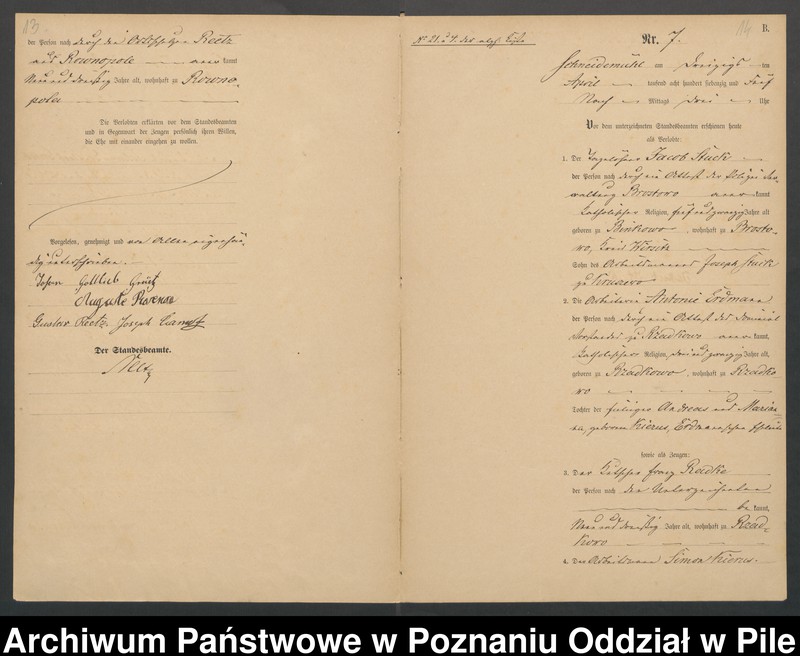 13
der Person nach durch den Ortsschulzen Reetz
aus Rownopole anerkannt
Neun und dreißig Jahre alt, wohnhaft zu Rowno-
pole
Die Verlobten erklärten vor dem Standesbeamten
und in Gegenwart der Zeugen persönlich ihren Willen,
die Ehe mit einander eingehen zu wollen.
Vorgelesen, genehmigt und von Allen eigenhän-
dig unterschrieben.
Johann Gottlieb
Auguste
Gustav Reetz Joseph
Der Standesbeamte.
No 21. u 4. des
14
B.
Nr. 7.
Schneidemühl am Dreizigsten
April tausend acht hundert siebenzig und fünf
Nach Mittags drei Uhr
Vor dem unterzeichneten Standesbeamten erschienen heute
als Verlobte:
1. Der Tagelöhner Jacob Stuck
der Person nach durch ein Attest der Polizei Ver-
waltung Brostowo anerkannt
katholischer Religion, fünf und zwanzig Jahre alt
geboren zu Binkowo, wohnhaft zu Brosto-
wo, Kreis Wirsitz
Sohn des Arbeitsmannes Joseph Stuck
zu
2. Die Arbeiterin Antonie Erdmann
der Person nach durch ein Attest des Dominial
Vorstandes zu Rzadkowo anerkannt,
katholischer Religion, drei und zwanzig Jahre alt,
geboren zu Rzadkowo, wohnhaft zu Rzadko
wo
Tochter der Andreas und Marian-
na, geborene Kierus, Erdmannschen Eheleute
sowie als Zeugen:
3. Der Kutscher Franz Radke
der Person nach dem Unterzeichneten
bekannt,
Neun und dreißig Jahre alt, wohnhaft zu Rzad-
kowo
4. Der Arbeitsmann Simon Kierus
Archiwum Państwowe w Poznaniu Oddział w Pile